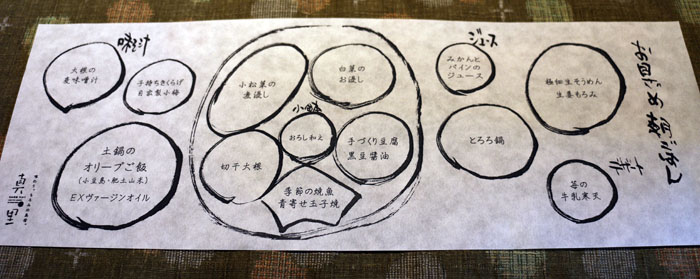 味噌汁
大根の
麦味噌汁
子持ちきくらげ
自家製小梅
土鍋の
オリーブご飯
(小豆島・肥土山米)
EXヴァージンオイル
小松菜の
煮浸し
白菜の
お浸し
おろし和え
切干大根
手づくり豆腐
黒豆醤油
季節の焼魚
青寄せ玉子焼
ジュース
みかんと
パインの
ジュース
とろろ鍋
極細生そうめん
生姜もろみ
苺の
牛乳寒天
真里